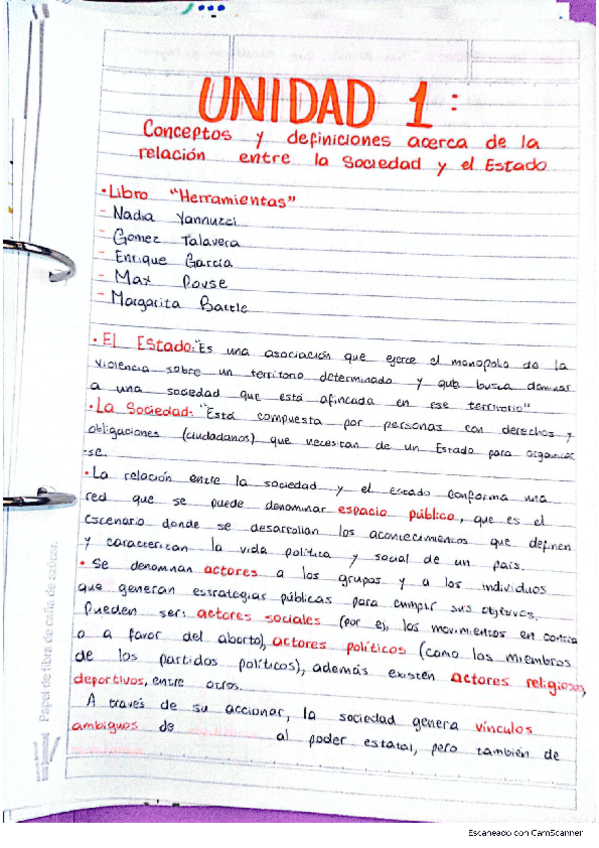 UNIDAD 1:
Conceptos y definiciones acerca de la
relación entre la Sociedad y el Estado
• Libro "Herramientas"
- Nadia Yannuzzi
- Gomez Talavera
- Enrique García
- Max Povse
- Margarita Batlle
• El Estado: "Es una asociación que ejerce el monopolio de la
violencia sobre un territorio determinado y que busca dominar
a una sociedad que está afincada en ese territorio"
• La Sociedad: "Está compuesta por personas con derechos y
obligaciones (ciudadanos) que necesitan de un Estado para organizar
-se.
• La relación entre la sociedad y el estado conforma una
red que se puede denominar espacio público, que es el
escenario donde se desarrollan los acontecimientos que definen
y caracterizan la vida política y social de un país.
• Se denominan actores a los grupos y a los individuos
que generan estrategias públicas para cumplir sus objetivos.
Pueden ser: actores sociales (por ej, los movimientos en contra
o a favor del aborto), actores políticos (como los miembros
de los partidos políticos), además existen actores religiosos,
deportivos, entre otros.
A través de su accionar, la sociedad genera vínculos
ambiguos de al poder estatal, pero también de
Papel de fibra de caña de azúcar.
Escaneado con CamScanner